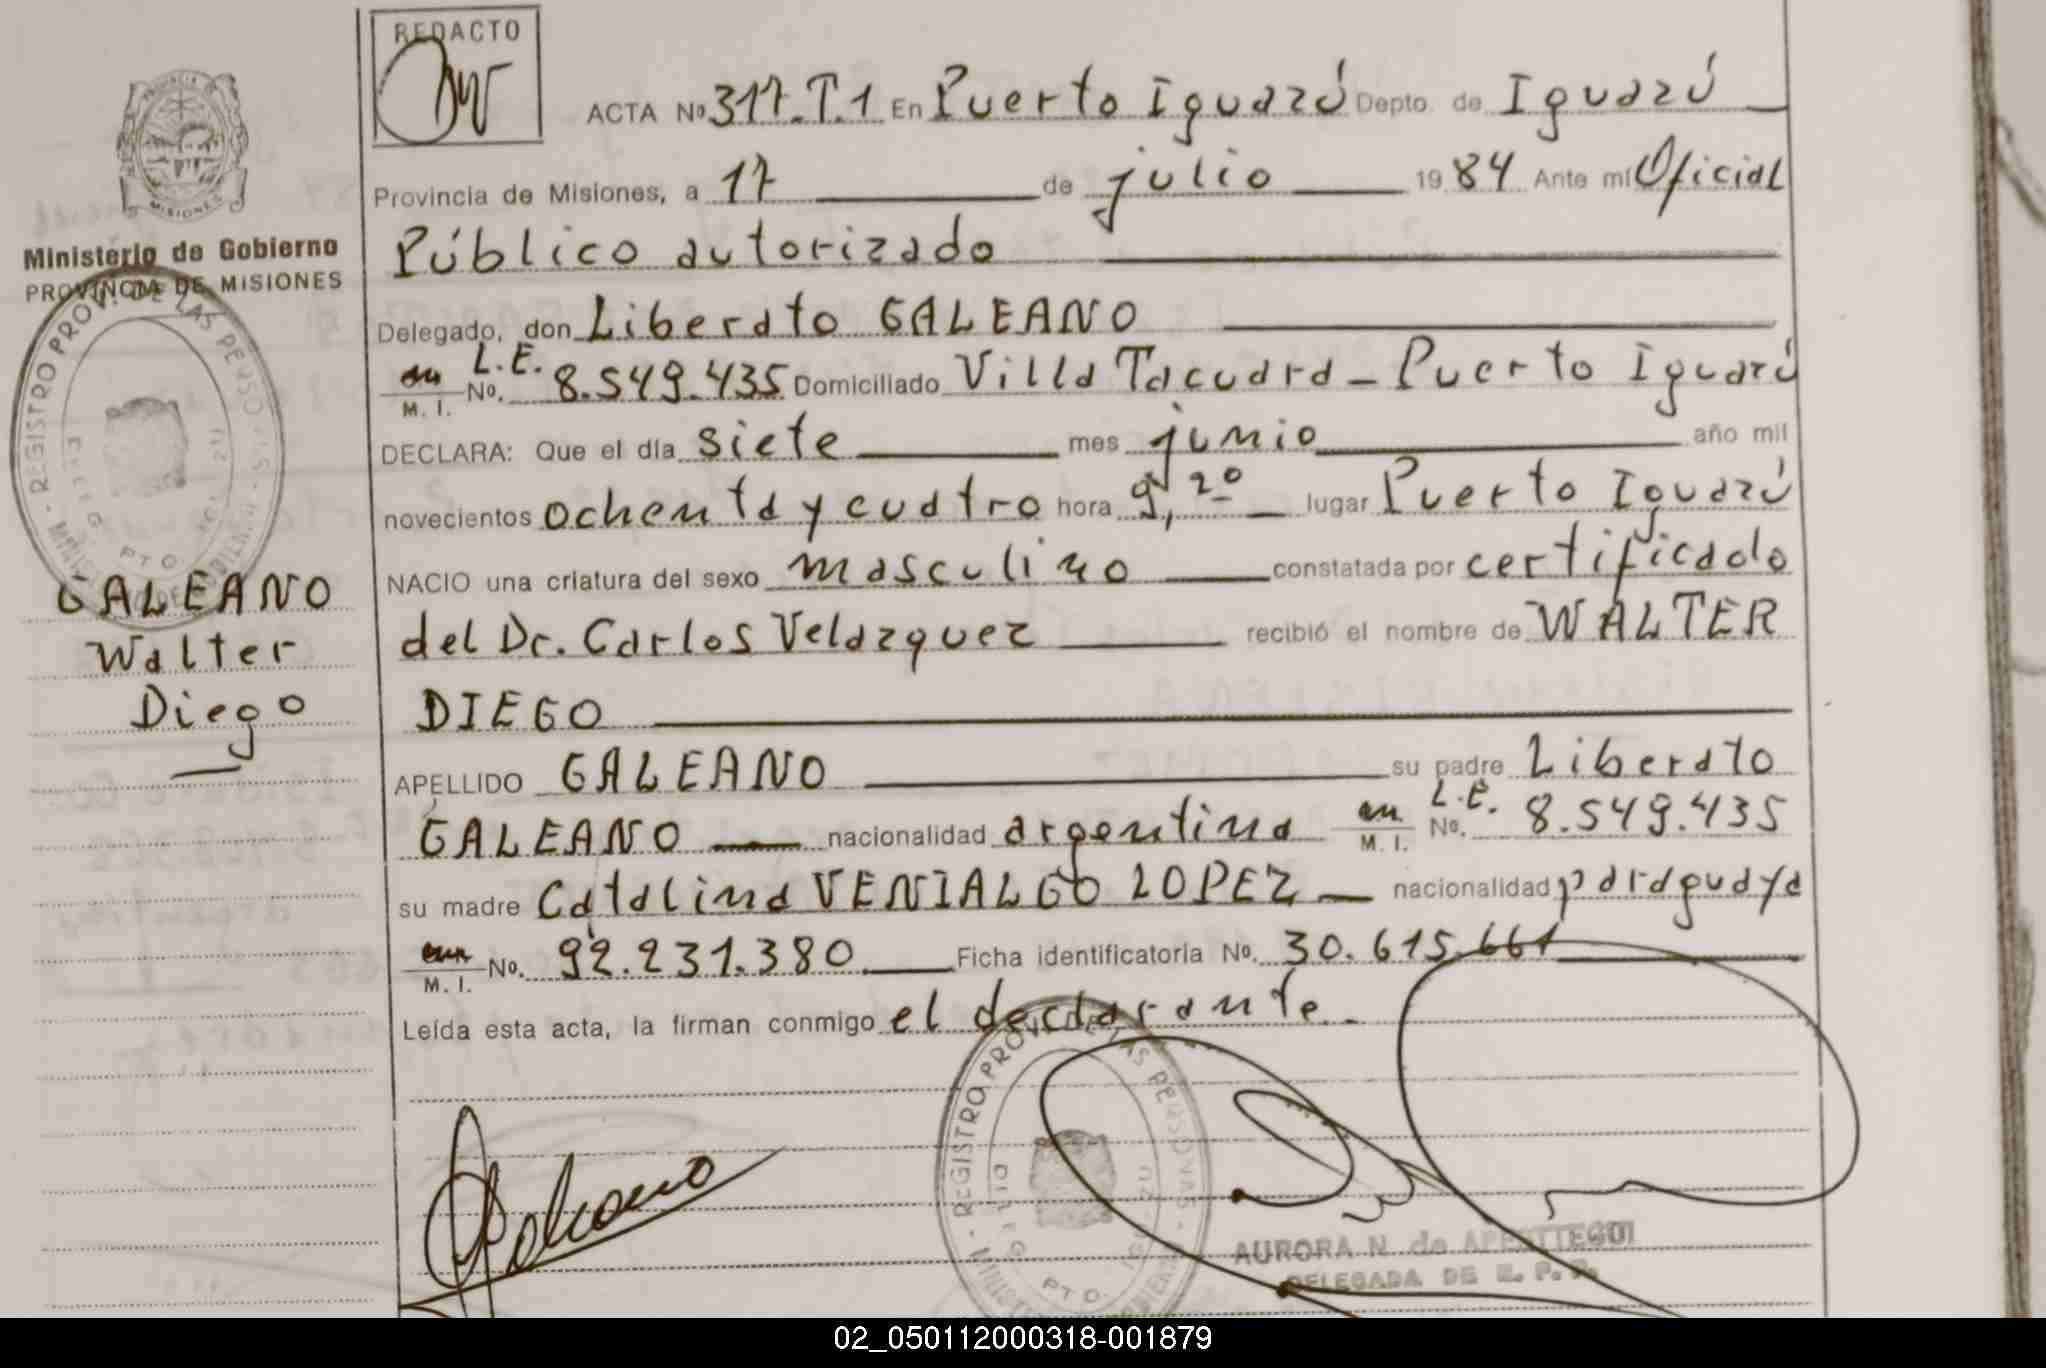 REDACTO
ACTA Nº 317.T.1 En Puerto Iguazú Depto. de Iguazú
Provincia de Misiones, a 17 de julio 1984 Ante mí Oficial
Público autorizado
Delegado, don Liberato GALEANO
M. I. L.E. Nº. 8.549.435 Domiciliado Villa Tacuara - Puerto Iguazú
DECLARA: Que el día siete mes junio año mil
novecientos ochenta y cuatro hora 9,20 lugar Puerto Iguazú
NACIO una criatura del sexo masculino constatada por certificado
del Dr. Carlos Velazquez recibió el nombre de WALTER
DIEGO
APELLIDO GALEANO su padre Liberato
GALEANO nacionalidad argentina M. I. L.E. Nº. 8.549.435
su madre Catalina VENIALGO LOPEZ nacionalidad paraguaya
M. I. Nº. 92.231.380 Ficha identificatoria Nº. 30.615.661
Leída esta acta, la firman conmigo el declarante.
PROVINCIA
MISIONES
Ministerio de Gobierno
PROVINCIA DE MISIONES
REGISTRO PROV. DE LAS PERSONAS
PTO.
GALEANO
Walter
Diego
REGISTRO PROV. DE LAS PERSONAS
PTO.
Galeano
AURORA N. de
DELEGADA DE
02_050112000318-001879